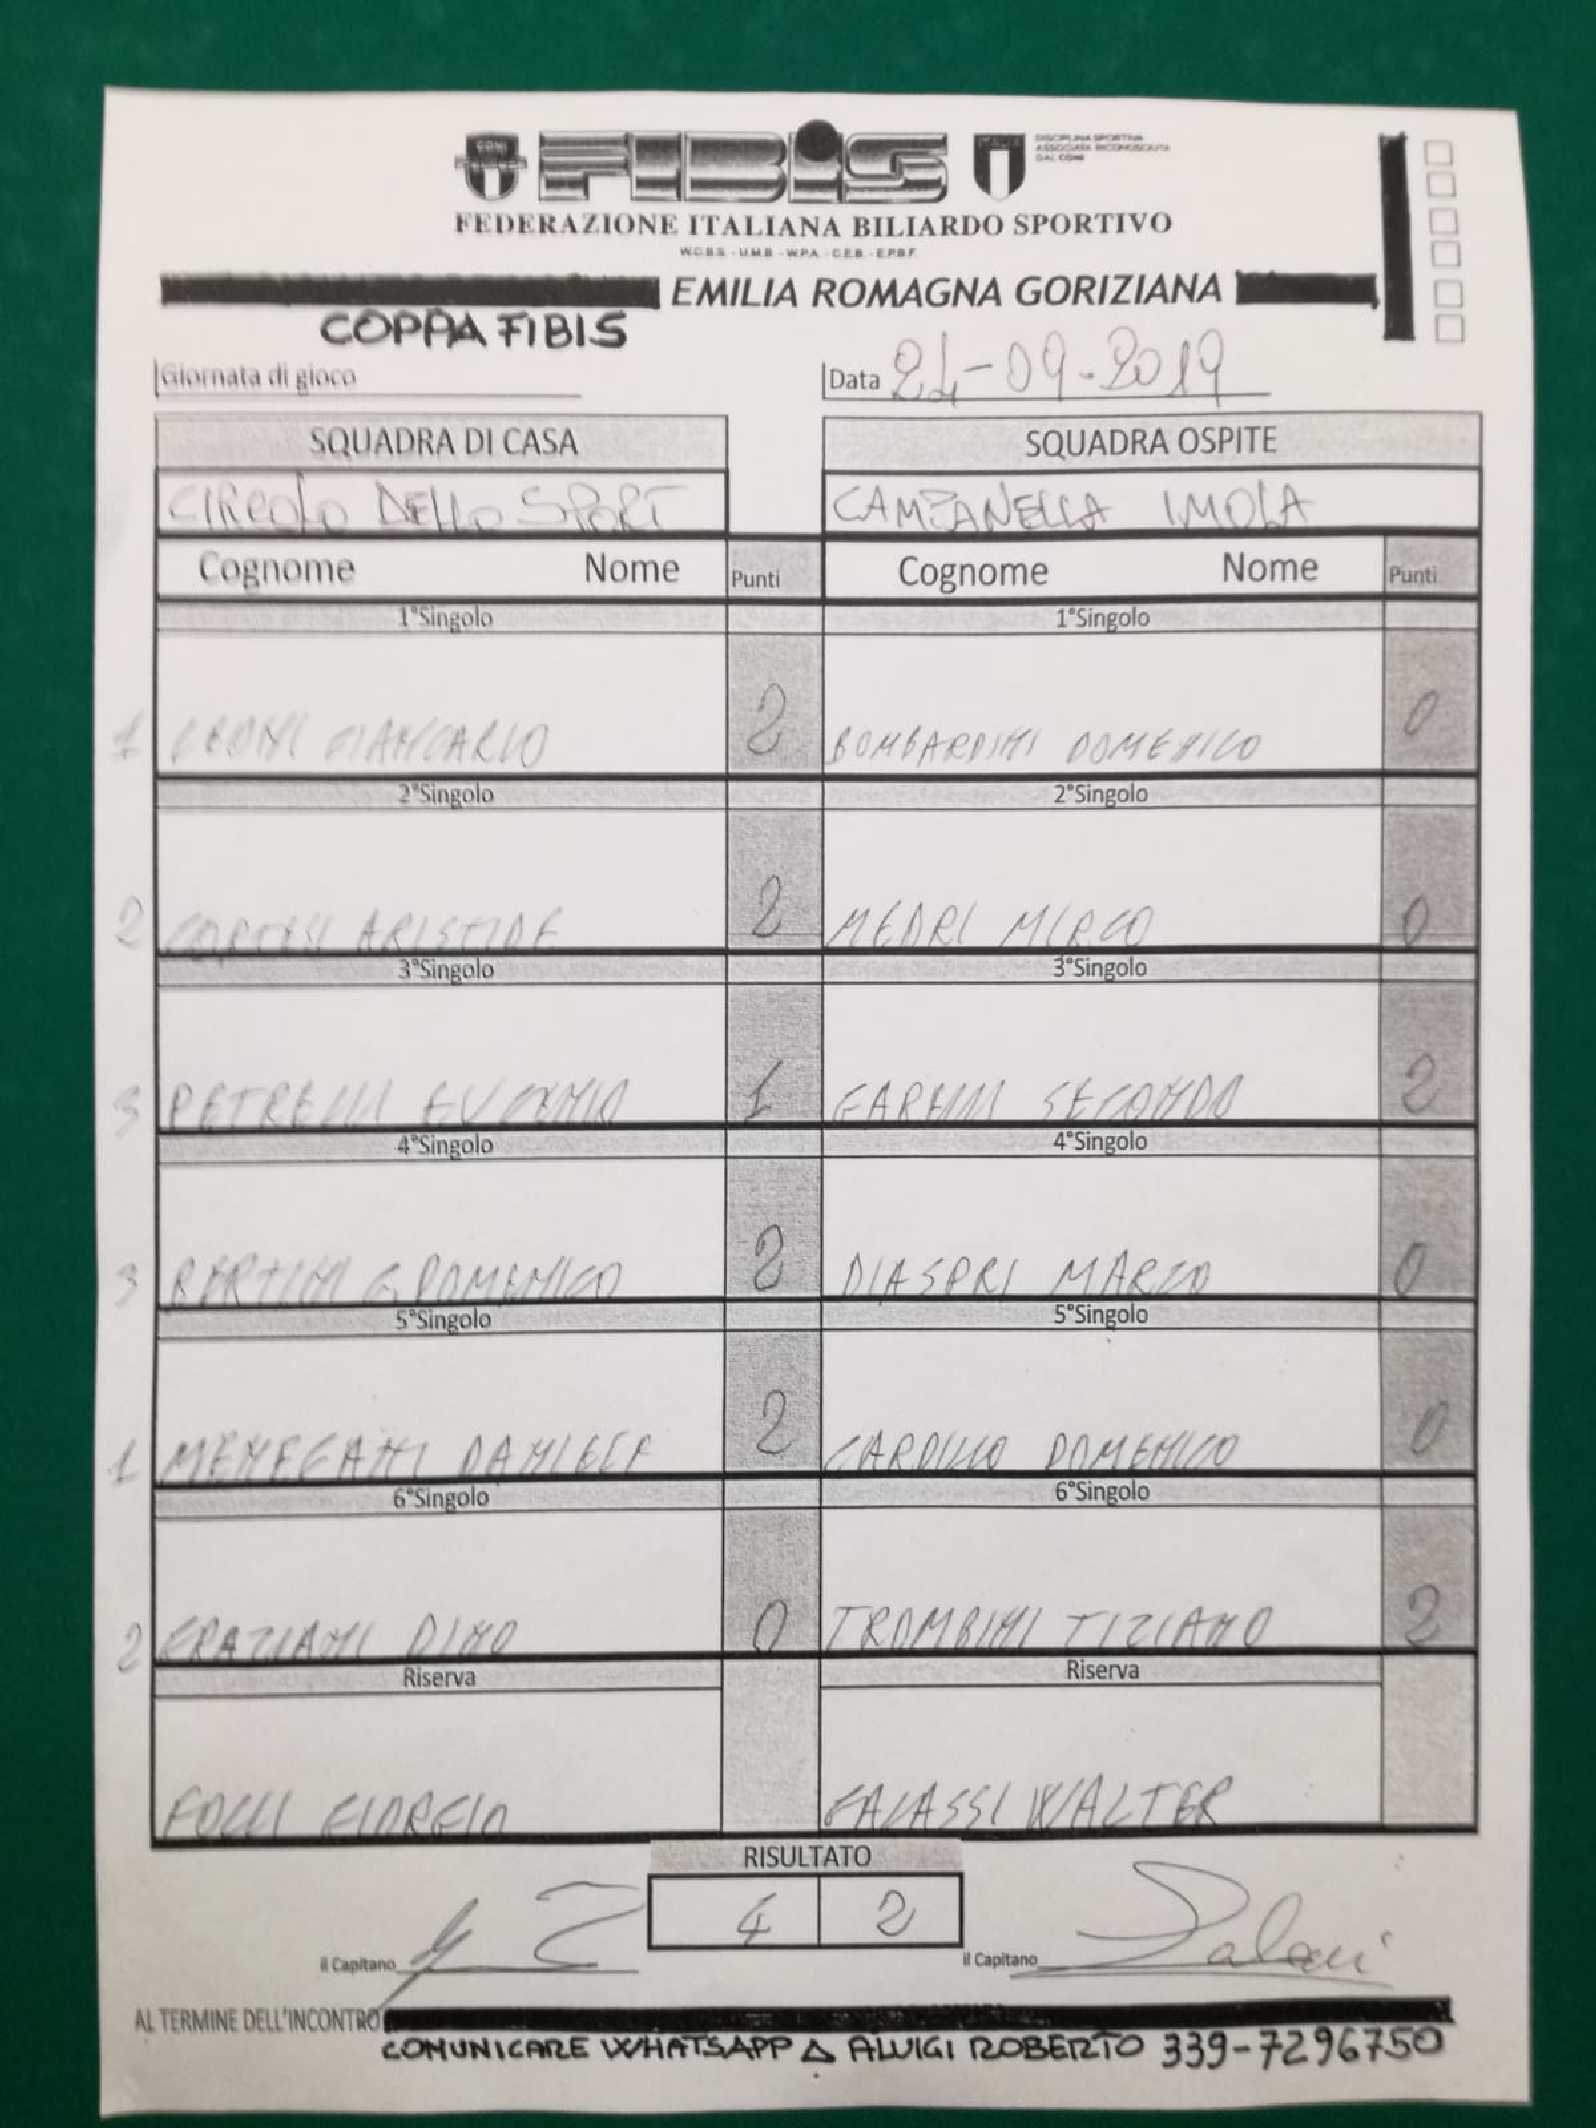 CONI FIBiS ITALIA DISCIPLINA SPORTIVA
ASSOCIATA RICONOSCIUTA
DAL CONI
FEDERAZIONE ITALIANA BILIARDO SPORTIVO
W.C.B.S. - U.M.B. - W.P.A. - C.E.B. - E.P.B.F.
EMILIA ROMAGNA GORIZIANA
COPPA FIBIS
Giornata di gioco Data 24-09-2019
SQUADRA DI CASA SQUADRA OSPITE
CIRCOLO DELLO SPORT CAMPANELLA IMOLA
Cognome Nome Punti Cognome Nome Punti
1°Singolo 1°Singolo
1 LEONI GIANCARLO 2 BOMBARDINI DOMENICO 0
2°Singolo 2°Singolo
2 CORTESI ARISTIDE 2 MEDRI MIRCO 0
3°Singolo 3°Singolo
3 PETRELLI EUGENIO 1 GARELLI SECONDO 2
4°Singolo 4°Singolo
3 BERTINI G. DOMENICO 2 DIASPRI MARCO 0
5°Singolo 5°Singolo
1 MENEGANI DANIELE 2 CARDILLO DOMENICO 0
6°Singolo 6°Singolo
2 GRAZIANI DINO 0 TROMBINI TIZIANO 2
Riserva Riserva
FOLLI GIORGIO GALASSI WALTER
RISULTATO
4 2
il Capitano il Capitano
AL TERMINE DELL'INCONTRO
COMUNICARE WHATSAPP A ALUIGI ROBERTO 339-7296750